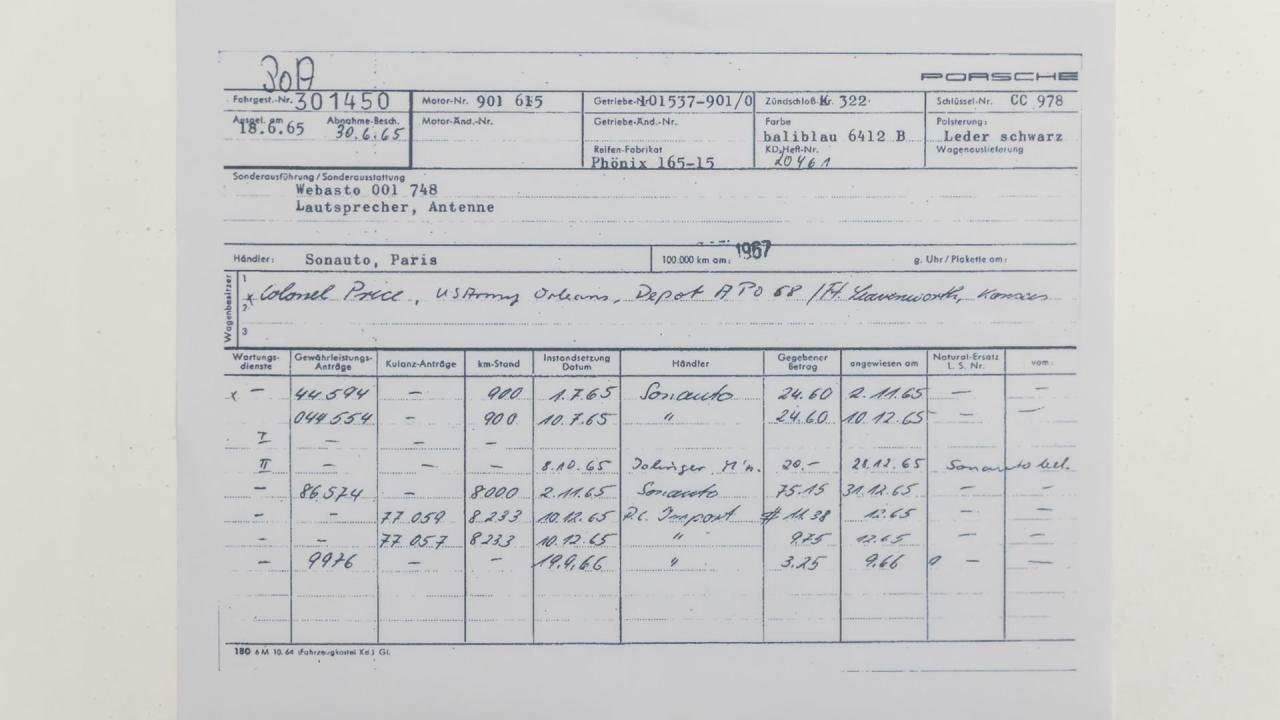 PORSCHE
Fahrgest.-Nr. 301450 Motor-Nr. 901 615 Getriebe-N 101537-901/0 Zündschloß-Nr. 322 Schlüssel-Nr. CC 978
Ausgel. am 18.6.65 Abnahme-Besch. 30.6.65 Motor-Änd.-Nr. Getriebe-Änd.-Nr. Farbe baliblau 6412 B Polsterung: Leder schwarz
Reifen-Fabrikat Phönix 165-15 KD-Heft-Nr. 20461 Wagenauslieferung
Sonderausführung/Sonderausstattung
Webasto 001 748
Lautsprecher, Antenne
Händler: Sonauto, Paris 100.000 km am: 1967 g. Uhr/Plakette am:
Wagenbesitzer
1
x Colonel Price, US Army Orleans, Depot APO 68 / Ft. Leavenworth, Kansas
2
3
Wartungs-dienste Gewährleistungs-Anträge Kulanz-Anträge km-Stand Instandsetzung Datum Händler Gegebener Betrag angewiesen am Natural-Ersatz L. S. Nr. vom:
x - 44.594 - 900 1.7.65 Sonauto 24.60 2.11.65 - -
044.554 - 900 10.7.65 " 24.60 10.12.65 - -
I - - -
II - - - 8.10.65 20.- 28.12.65 Sonauto bel.
- 86.574 - 8000 2.11.65 Sonauto 75.15 31.12.65 - -
- - 77 059 8.233 10.12.65 P.C. Import # 11.38 12.65 - -
- - 77 057 8.233 10.12.65 " 9.75 12.65 - -
- 9976 - - 19.9.66 " 3.25 9.66 - -
180 6 M 10. 64 (Fahrzeugkartei Kd.) Gl.